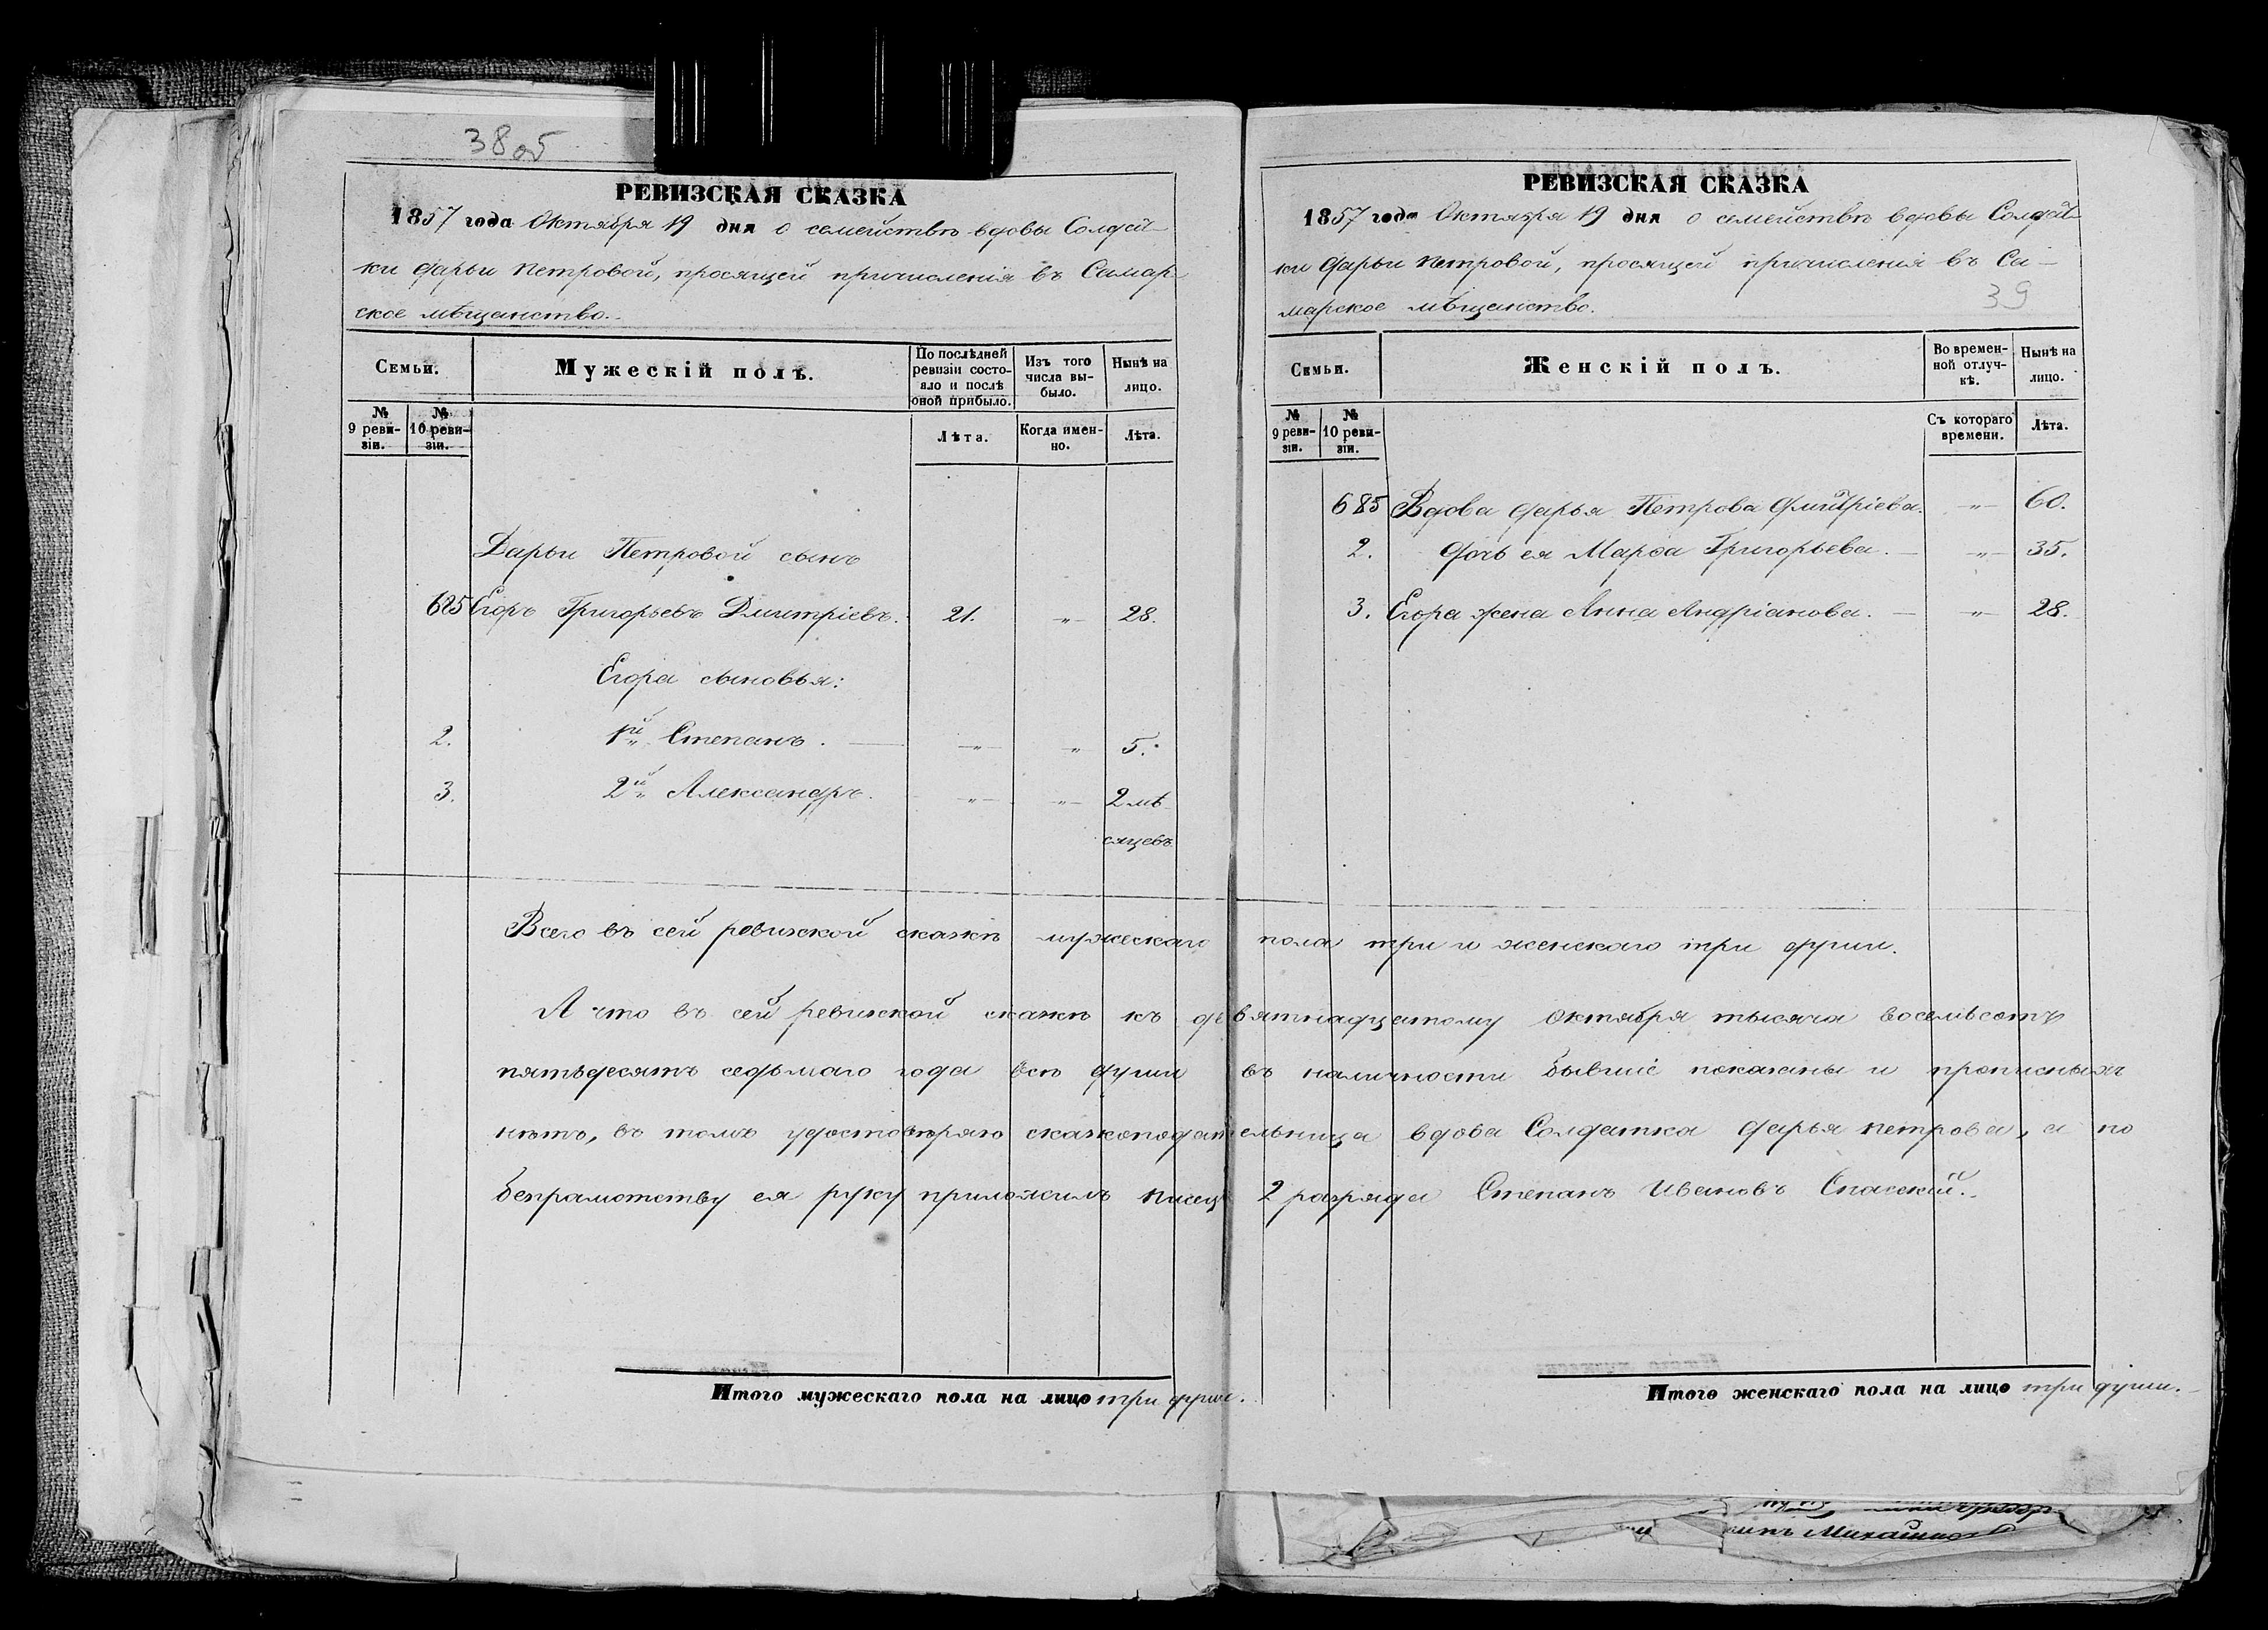 38об
РЕВИЗСКАЯ СКАЗКА
1857 года Октября 19 дня о семействѣ вдовы Солдат-
ки Дарьи Петровой, просящей причисленія въ Самар
ское мѣщанство.
Семьи.
Мужескій полъ.
По послѣдней ревизіи состояло и послѣ оной прибыло.
Изъ того числа вы-было.
Нынѣ на лицо.
№ 9 реви-зіи.
№ 10 реви-зіи.
Лѣта.
Когда имен-но.
Лѣта.
Дарьи Петровой сынъ
685 Егоръ Григорьевъ Дмитріевъ. 21. „ 28.
Егора сыновья:
2. 1й Степанъ. „ „ 5.
3. 2й Александръ. „ „ 2 мѣ
сяцевъ
РЕВИЗСКАЯ СКАЗКА
1857 года Октября 19 дня о семействѣ вдовы Солдат-
ки Дарьи Петровой, просящей причисленія въ Са-
марское мѣщанство.
39
Семьи.
Женскій полъ.
Во времен-ной отлуч-кѣ.
Нынѣ на лицо.
№ 9 реви-зіи.
№ 10 реви-зіи.
Съ котораго времени.
Лѣта.
685 Вдова Дарья Петрова Дмитріева. „ 60.
2. Дочь ея Марѳа Григорьева. „ 35.
3. Егора жена Анна Андріанова. „ 28.
Всего въ сей ревизской сказкѣ мужескаго пола три и женскаго три души.
А что въ сей ревизской сказкѣ къ девятнадцатому Октября тысяча восемьсотъ
пятьдесятъ седьмаго года всѣ души въ наличности бывшіе показаны и прописныхъ
нѣтъ, въ томъ удостовѣряю сказкоподательница вдова Солдатка Дарья Петрова, а по
безграмотству ея руку приложилъ писец 2 разряда Степанъ Ивановъ Спасскій.
Итого мужескаго пола на лицо три души.
Итого женскаго пола на лицо три души.